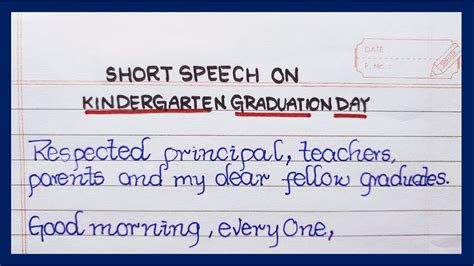 DATE
P. No.
SHORT SPEECH ON
KINDERGARTEN GRADUATION DAY
Respected principal, teachers,
parents and my dear fellow graduates.
Good morning, everyOne,